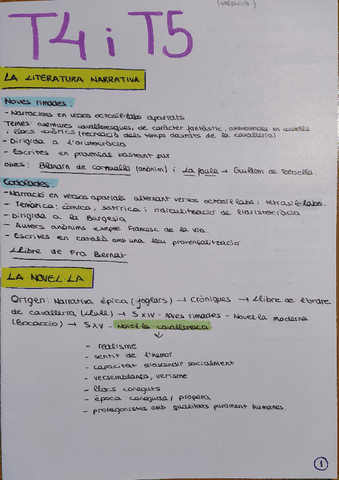 (VALENCIÀ)
T4 i T5
LA LITERATURA NARRATIVA
Noves rimades:
- Narracions en versos octosíl·labs apariats
Temes: aventures cavalleresques, de caràcter fantàstic, ambientades en
i llocs exòtics (recreació dels temps daurats de la cavalleria)
- Dirigida a l'aristocràcia
- Escrites en provençal bastant pur
obres: Blandín de Cornualla (anònim) i La faula → Guillem de Torroella
Codolades:
- Narració en versos apariats alternant versos octosíl·labs i tetrasíl·labs.
- Temàtica: còmica, satírica i ridiculització de l'aristocràcia
- Dirigida a la Burgesia
- Autors anònims excepte Francesc de la Via.
- Escrites en català amb una lleu provençalització
Llibre de Fra Bernat
LA NOVEL·LA
Origen: Narrativa èpica (joglars) → Cròniques → Llibre de l'ordre
de cavalleria (Llull) → S XIV - noves rimades - Novel·la moderna
(Bocaccio) → S XV - Novel·la cavalleresca
- realisme
- sentit de l'humor
- capacitat d'ascendir socialment
- versemblança, verisme
- llocs coneguts
- època coneguda / propera
- protagonistes amb qualitats purament humanes.
1